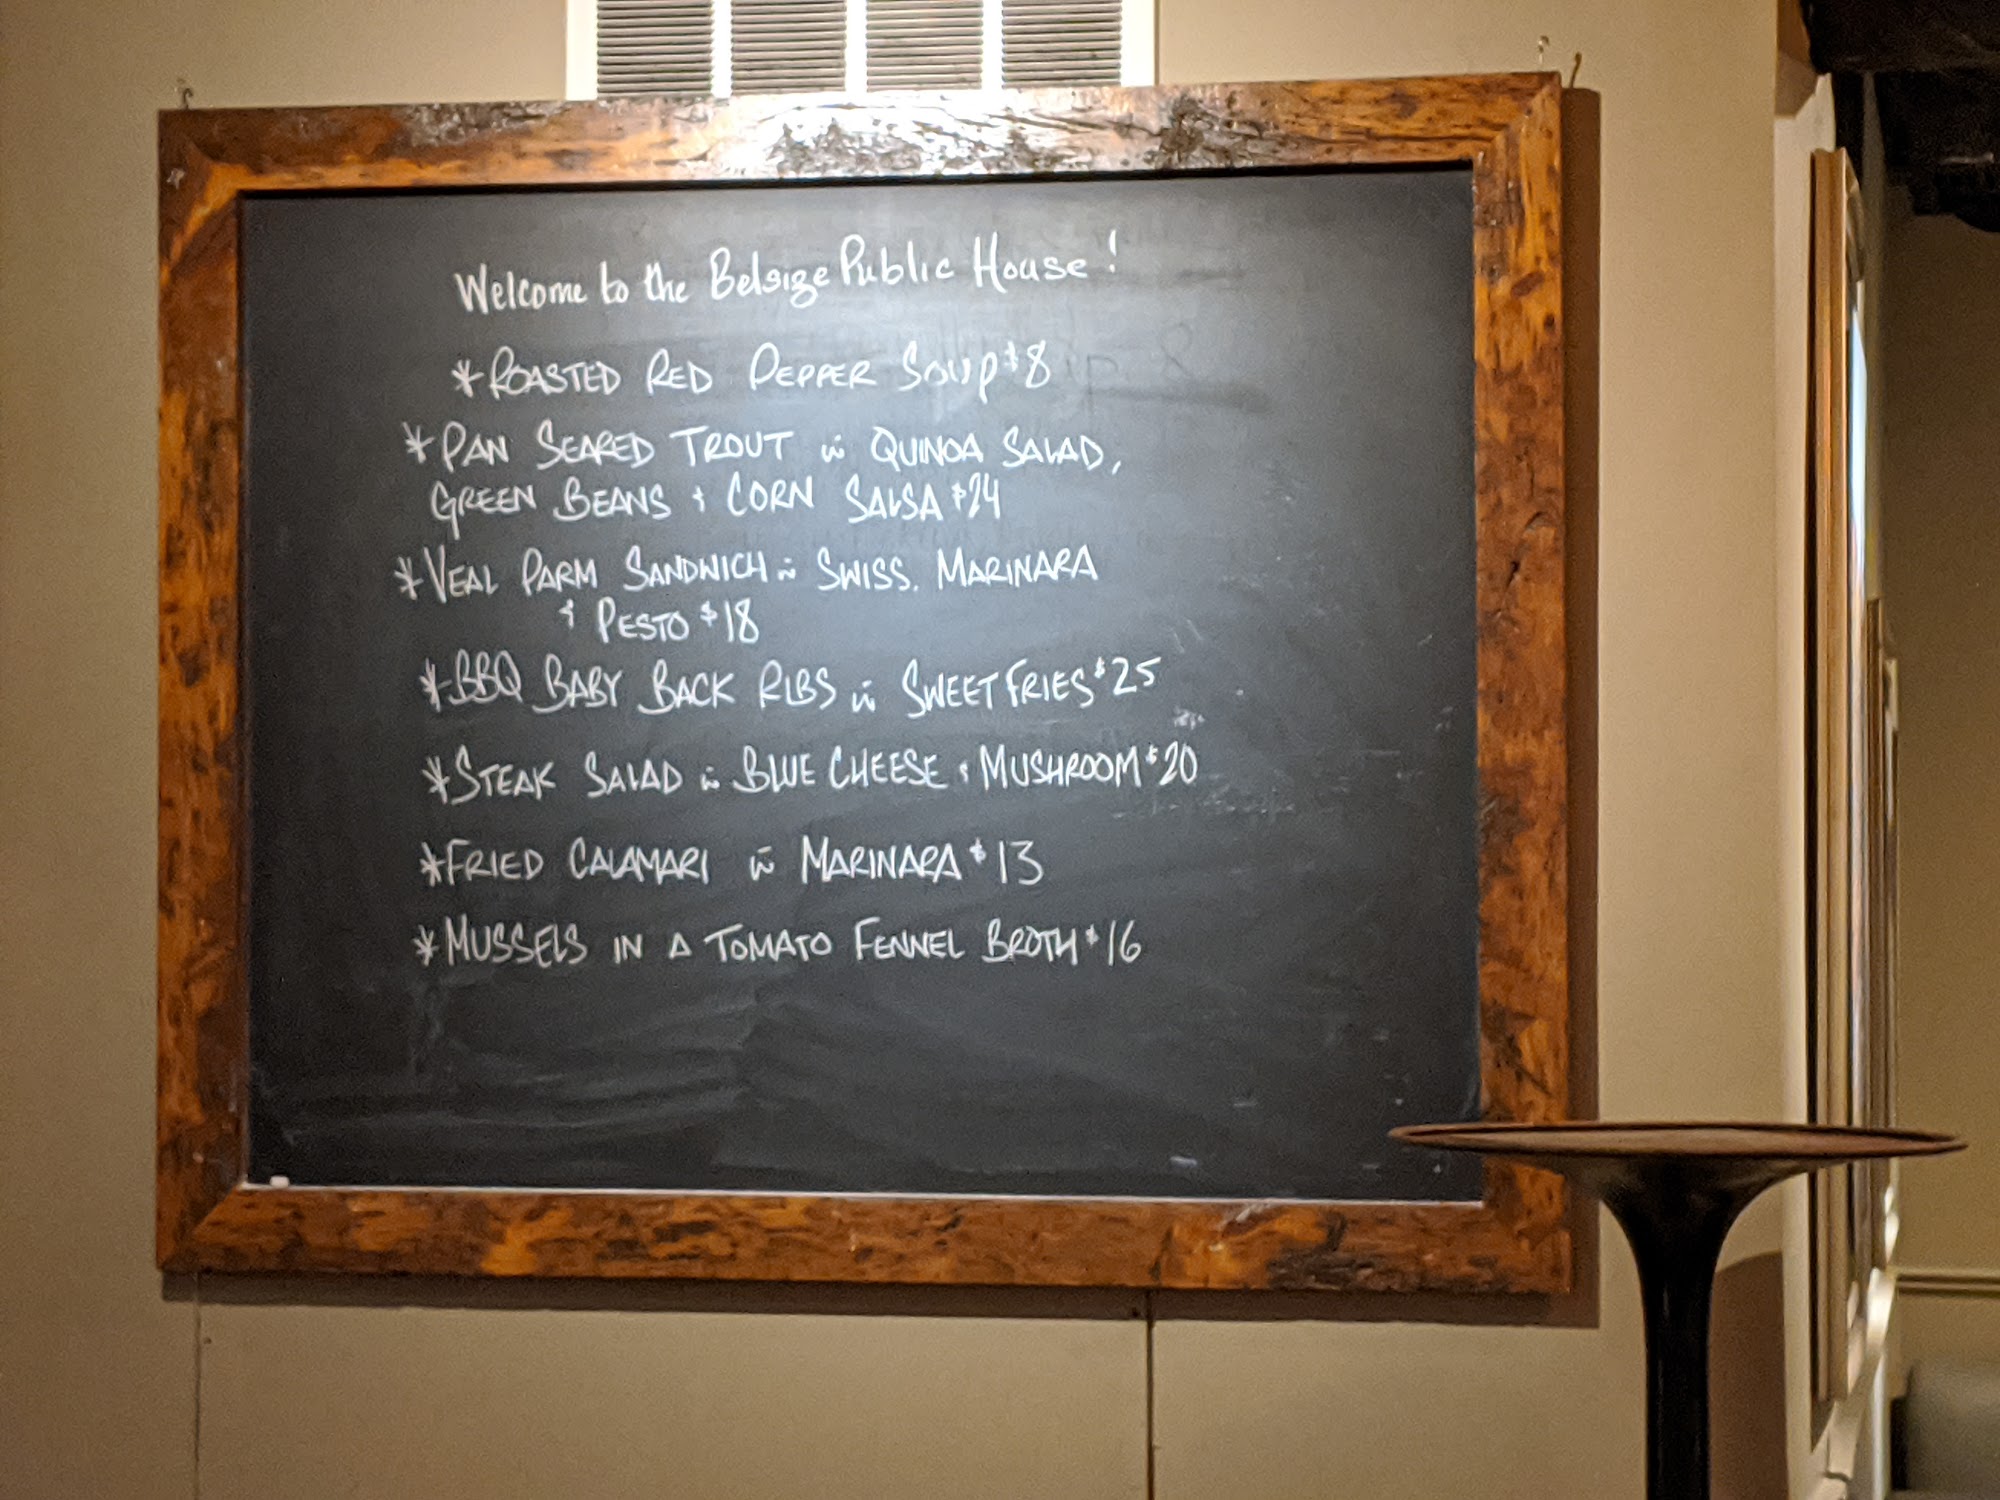 Welcome to the Belsize Public House!
*ROASTED RED PEPPER SOUP $8
*PAN SEARED TROUT w QUINOA SALAD,
GREEN BEANS & CORN SALSA $24
*VEAL PARM SANDWICH w SWISS, MARINARA
& PESTO $18
*BBQ BABY BACK RIBS w SWEET FRIES $25
*STEAK SALAD w BLUE CHEESE & MUSHROOM $20
*FRIED CALAMARI w MARINARA $13
*MUSSELS IN A TOMATO FENNEL BROTH $16